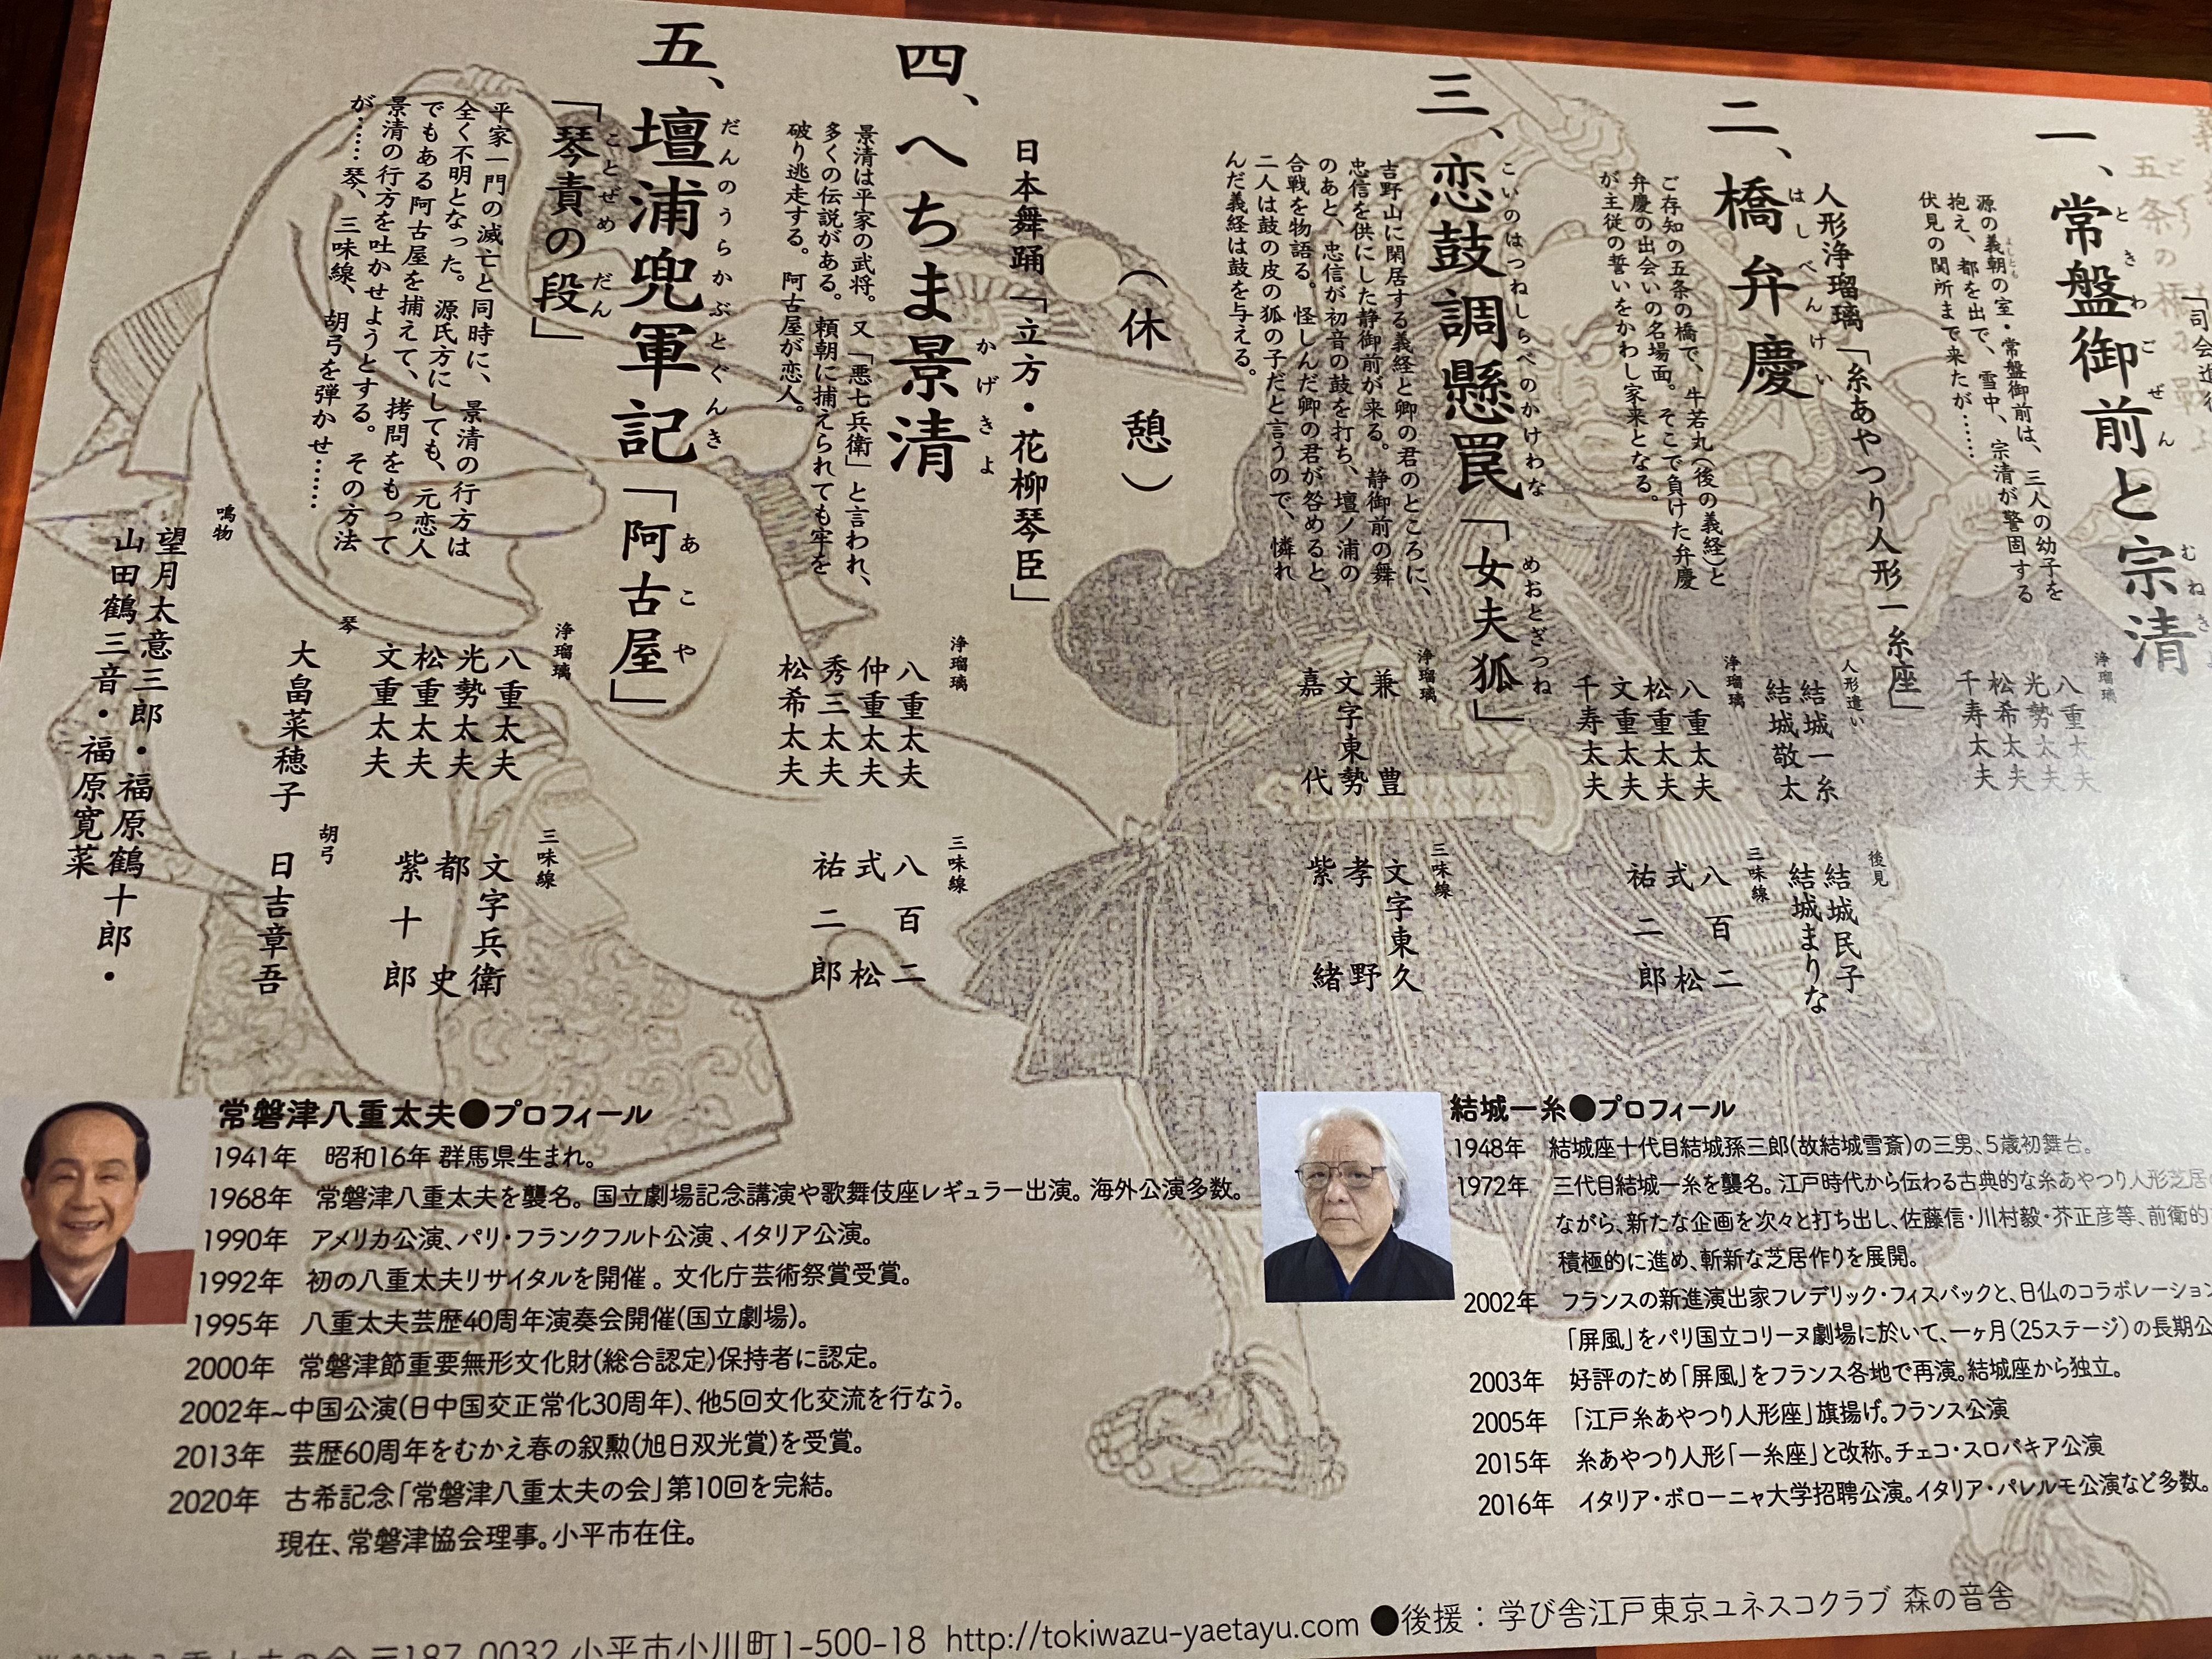 一、常盤御前と宗清
ときわごぜん むねき
源の義朝の室・常盤御前は、三人の幼子を
抱え、都を出で、雪中、宗清が警固する
伏見の関所まで来たが……
浄瑠璃
八重太夫
光勢太夫
松希太夫
千寿太夫
人形浄瑠璃「糸あやつり人形一糸座」
二、橋弁慶
はしべんけい
ご存知の五条の橋で、牛若丸(後の義経)と
弁慶の出会いの名場面。そこで負けた弁慶
が主従の誓いをかわし家来となる。
人形遣い
結城一糸
結城敬太
後見
結城民子
結城まりな
浄瑠璃
八重太夫
松重太夫
文重太夫
千寿太夫
三味線
八百二
式松
祐二郎
三、恋鼓調懸罠「女夫狐」
こいのはつねしらべのかけわな めおとぎつね
吉野山に閑居する義経と卿の君のところに、
忠信を供にした静御前が来る。静御前の舞
のあと、忠信が初音の鼓を打ち、壇ノ浦の
合戦を物語る。怪しんだ卿の君が咎めると、
二人は鼓の皮の狐の子だと言うので、憐れ
んだ義経は鼓を与える。
浄瑠璃
兼豊
文字東勢
嘉代
三味線
文字東久
孝野
紫緒
(休憩)
日本舞踊「立方・花柳琴臣」
四、へちま景清
かげきよ
景清は平家の武将。又「悪七兵衛」と言われ、
多くの伝説がある。頼朝に捕えられても牢を
破り逃走する。阿古屋が恋人。
浄瑠璃
八重太夫
仲重太夫
秀三太夫
松希太夫
三味線
八百二
式松
祐二郎
五、壇浦兜軍記「阿古屋」
だんのうらかぶとぐんき あこや
「琴責の段」
ことぜめ だん
平家一門の滅亡と同時に、景清の行方は
全く不明となった。源氏方にしても、元恋人
でもある阿古屋を捕えて、拷問をもって
景清の行方を吐かせようとする。その方法
が……琴、三味線、胡弓を弾かせ……
浄瑠璃
八重太夫
光勢太夫
松重太夫
文重太夫
三味線
文字兵衛
都史
紫十郎
琴
大畠菜穂子
胡弓
日吉章吾
鳴物
望月太意三郎・福原鶴十郎・
山田鶴三音・福原寛菜
常磐津八重太夫●プロフィール
1941年 昭和16年 群馬県生まれ。
1968年 常磐津八重太夫を襲名。国立劇場記念講演や歌舞伎座レギュラー出演。海外公演多数。
1990年 アメリカ公演、パリ・フランクフルト公演、イタリア公演。
1992年 初の八重太夫リサイタルを開催。文化庁芸術祭賞受賞。
1995年 八重太夫芸歴40周年演奏会開催(国立劇場)。
2000年 常磐津節重要無形文化財(総合認定)保持者に認定。
2002年~中国公演(日中国交正常化30周年)、他5回文化交流を行なう。
2013年 芸歴60周年をむかえ春の叙勲(旭日双光賞)を受賞。
2020年 古希記念「常磐津八重太夫の会」第10回を完結。
現在、常磐津協会理事。小平市在住。
結城一糸●プロフィール
1948年 結城座十代目結城孫三郎(故結城雪斎)の三男、5歳初舞台。
1972年 三代目結城一糸を襲名。江戸時代から伝わる古典的な糸あやつり人形芝居
ながら、新たな企画を次々と打ち出し、佐藤信・川村毅・芥正彦等、前衛的
積極的に進め、斬新な芝居作りを展開。
2002年 フランスの新進演出家フレデリック・フィスバックと、日仏のコラボレーション
「屏風」をパリ国立コリーヌ劇場に於いて、一ヶ月(25ステージ)の長期公
2003年 好評のため「屏風」をフランス各地で再演。結城座から独立。
2005年 「江戸糸あやつり人形座」旗揚げ。フランス公演
2015年 糸あやつり人形「一糸座」と改称。チェコ・スロバキア公演
2016年 イタリア・ボローニャ大学招聘公演。イタリア・パレルモ公演など多数。
常磐津八重太夫の会 〒187-0032 小平市小川町1-500-18 http://tokiwazu-yaetayu.com ●後援：学び舎江戸東京ユネスコクラブ 森の音舎